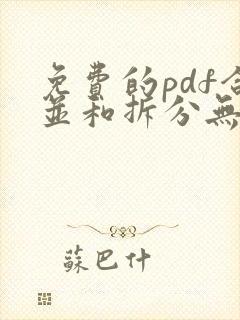 免費的pdf合
並和拆分無
蘇巴什